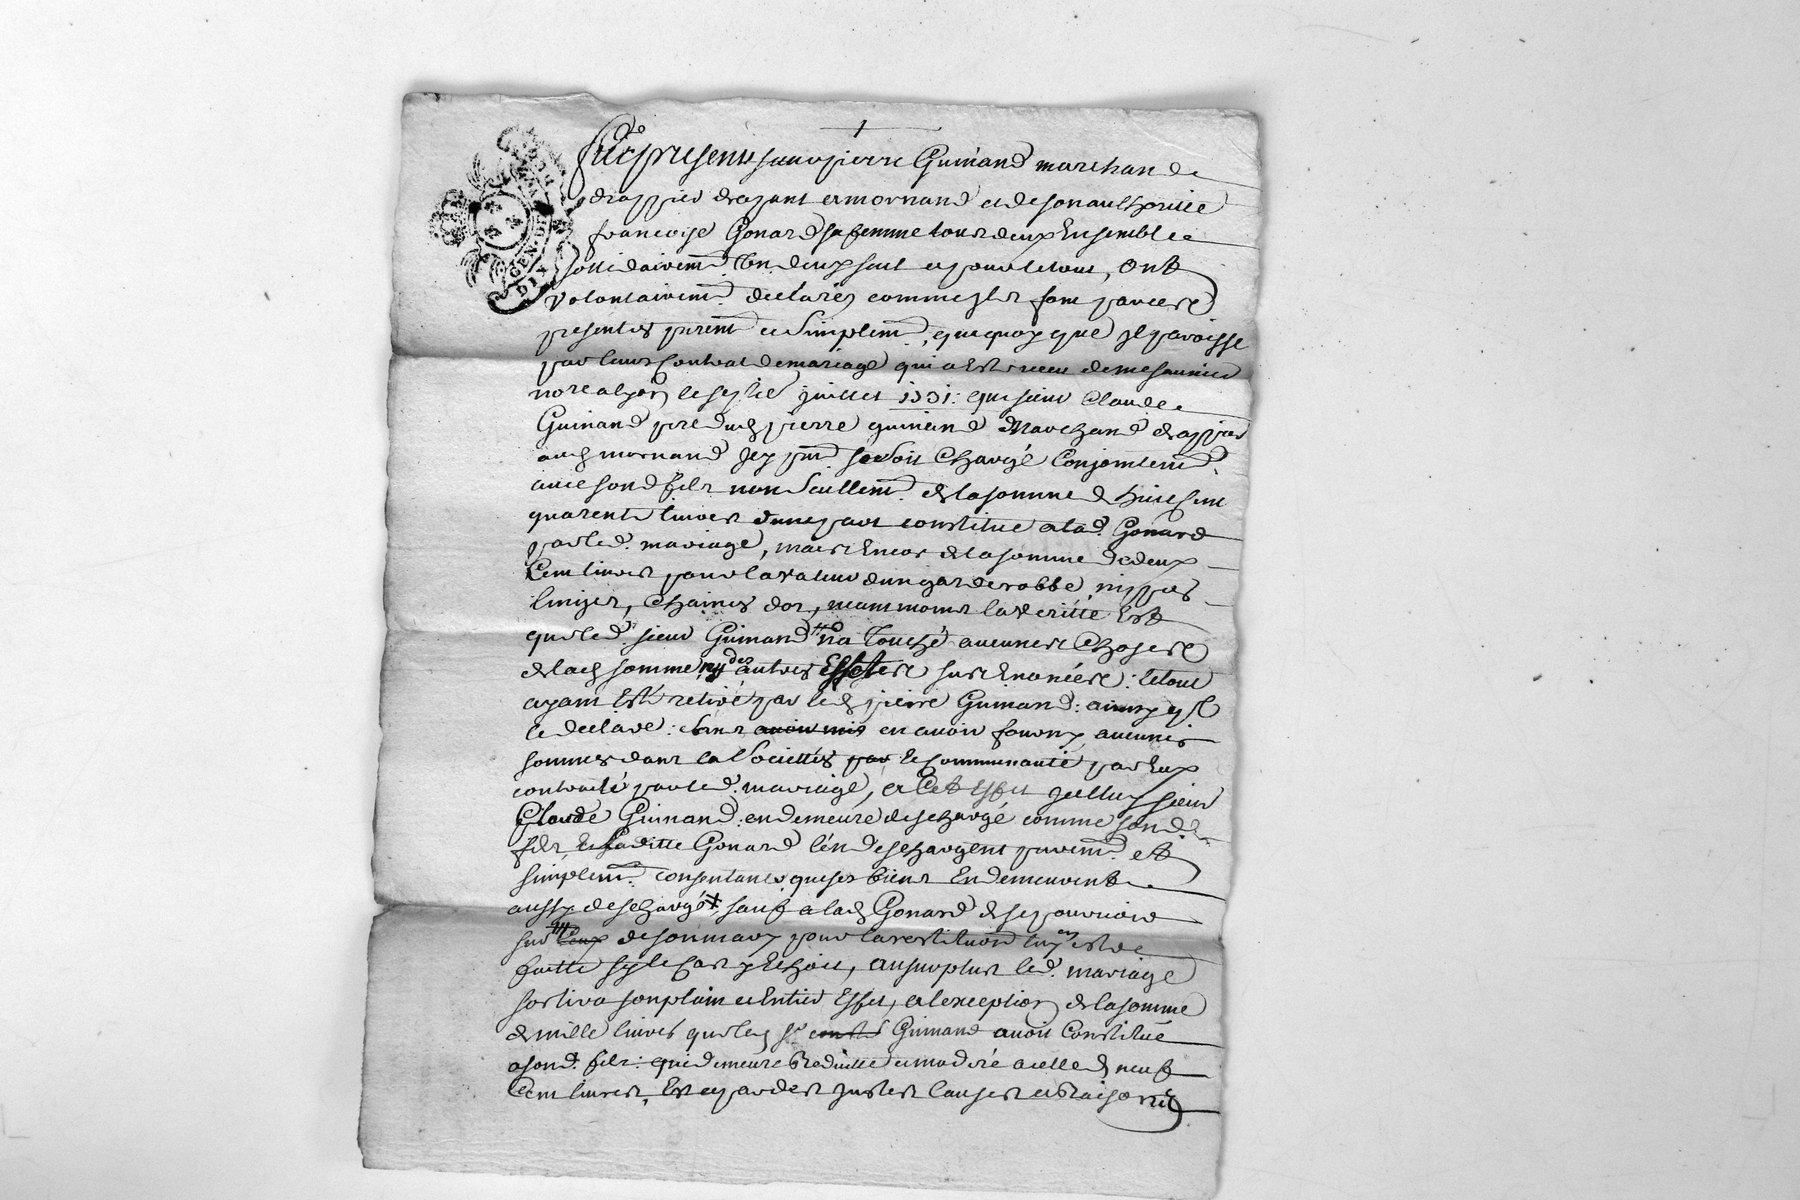 furent presents sieur pierre Guinand marchand
drappier drapant a mornand et de son authorité
francoise Gonard sa femme tous deux Ensemble
sollidairemt. lun deux seul et pour le tout, ont
volontairemt. declarés comme ils font par ces
presentes puremt et simplemt. que quoy que il paroisse
par leur Contrat de mariage qui a esté receu de me
nore a lyon le juillet 1731: que sieur Claude
Guinand pere dud pierre guinand Marchand drappier
aud mornand Icy pnt se soit Chargé Conjointemt.
avec sond fils non seullemt. de la somme de huit cent
quarente livres dune part constitué a lad. Gonard
par led. mariage, mais Encor de la somme de deux
Cent livres pour la valeur dun garderobbe, nippes
linges, Chaines dor, neantmoins la verité Est
que led. sieur Guinand na touché aucunes Choses
de lad somme ny des autres Effets sus Enoncés: le tout
ayant Esté retiré par led pierre Guinand: ainsy quil
le declare: sans avoir mis en avoir fourny aucunes
sommes dans la Societtés par le communauté par Eux
contracté par led. mariage, et a Cet Effet Icelluy sieur
Claude Guinand: en demeure deschargé comme sond.
fils, et laditte Gonard len deschargent puremt. et
simplemt. consentans que ses biens En demeurent
aussy deschargés + sauf a lad Gonard de se pourvoir
sur Ceux de son mary pour la restitution
faitte sy le Cas y Echoit, au surplus led. mariage
sortira son plain et Entier Effet, a lexception de la somme
de mille livres que led Sr Guinand avoit Constitué
a sond. fils: qui demeure Reduitte et moderé a celle de neuf
Cent livres, Et ce par des justes Causes et Raisons
DIX DEN.